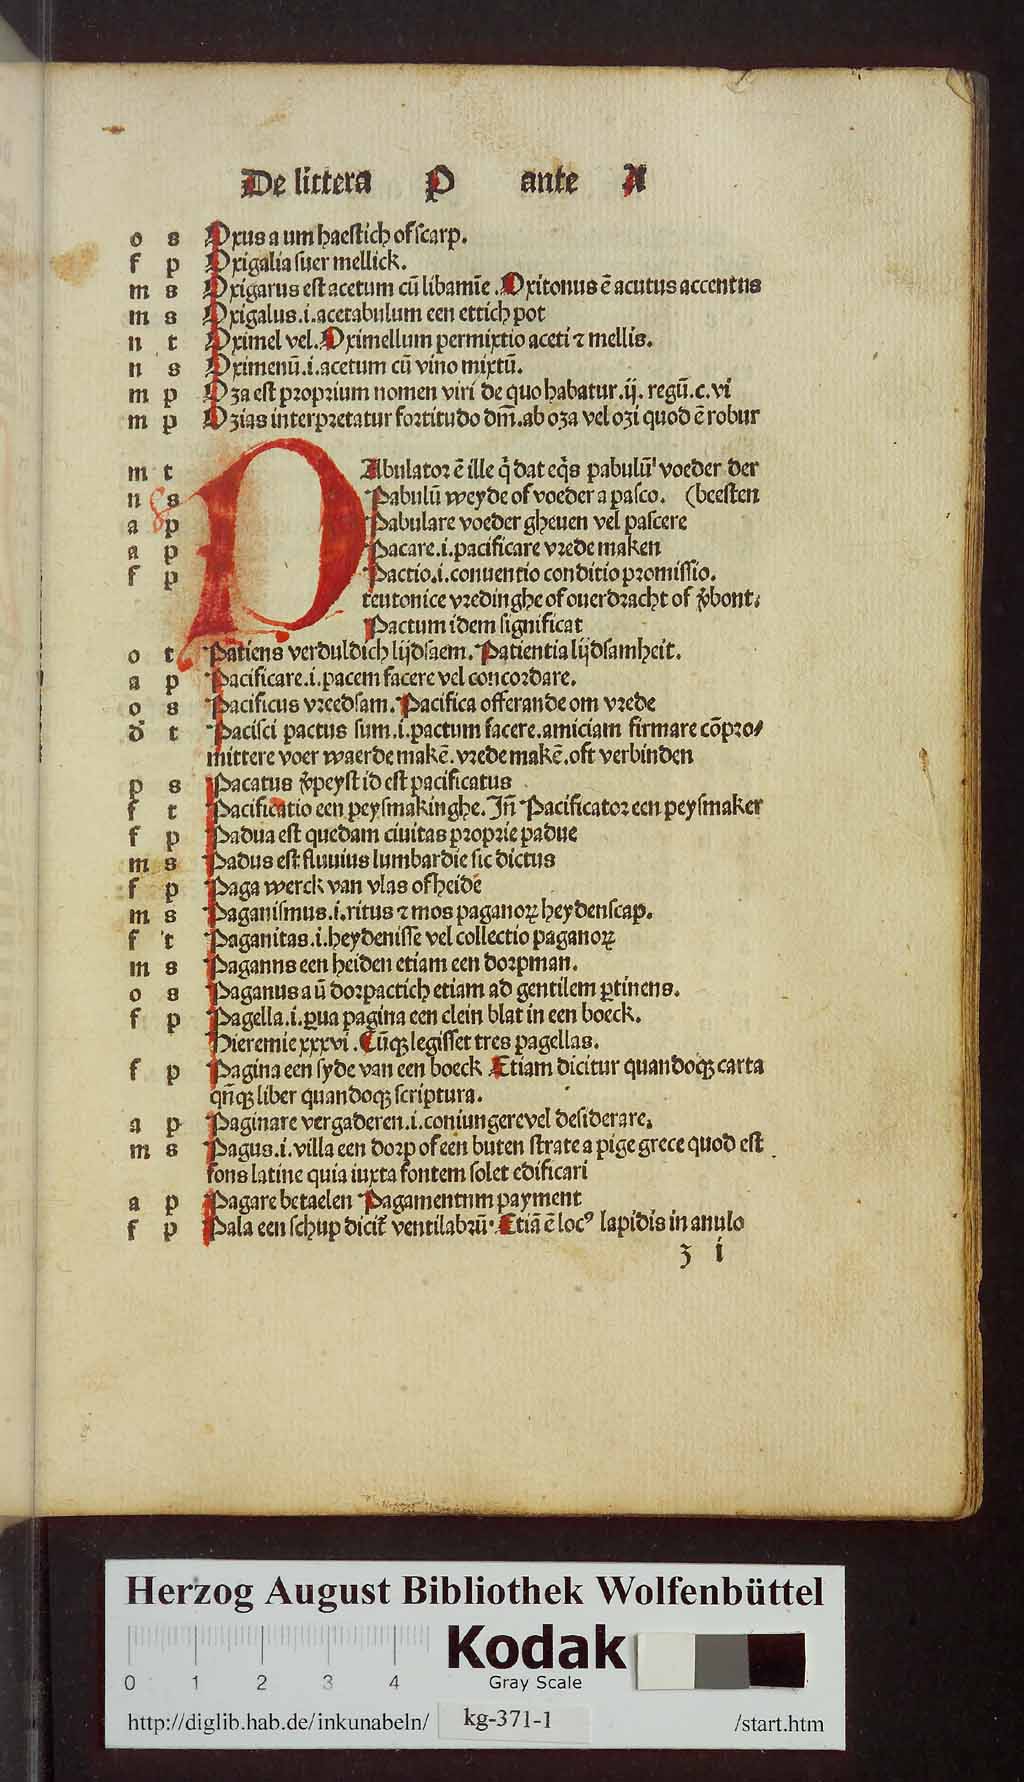 De littera P ante A
o s Oxus a um haestich of scarp.
f p Oxigalia suer mellick.
m s Oxigarus est acetum cū libamīe. Oxitonus ē acutus accentus
m s Oxigalus .i. acetabulum een ettich pot
n t Oximel vel. Oximellum permixtio aceti ⁊ mellis.
n s Oximenū .i. acetum cū vino mixtū.
m p Oza est proprium nomen viri de quo habatur .ij. regū. c. vi
m p Ozias interpretatur fortitudo dm̄. ab oza vel ozi quod ē robur
m t PAbulator ē ille q̇ dat eq̇s pabulū voeder der
n s Pabulū weyde of voeder a pasco. (beesten
a p Pabulare voeder gheuen vel pascere
a p Pacare .i. pacificare vrede maken
f p Pactio .i. conuentio conditio promissio.
teutonice vredinghe of ouerdracht of v̓bont.
Pactum idem significat
o t Patiens verduldich lijdsaem. Patientia lijdsamheit.
a p Pacificare .i. pacem facere vel concordare.
o s Pacificus vreedsam. Pacifica offerande om vrede
d̓ t Pacisci pactus sum .i. pactum facere. amiciam firmare cōpro/
mittere voer waerde makē. vrede makē. oft verbinden
p s Pacatus v̓peyst id est pacificatus
f t Pacificatio een peysmakinghe. Jn̄ Pacificator een peysmaker
f p Padua est quedam ciuitas proprie padue
m s Padus est fluuius lumbardie sic dictus
f p Paga werck van vlas of heide
m s Paganismus .i. ritus ⁊ mos paganoꝝ heydenscap.
f t Paganitas .i. heydenisse vel collectio paganoꝝ
m s Paganns een heiden etiam een dorpman.
o s Paganus a ū dorpactich etiam ad gentilem ꝑtinens.
f p Pagella .i. ꝑua pagina een clein blat in een boeck.
Hieremie xxxvi. Cūqꝫ legisset tres pagellas.
f p Pagina een syde van een boeck Etiam dicitur quandoqꝫ carta
qn̄qꝫ liber quandoqꝫ scriptura.
a p Paginare vergaderen .i. coniungere vel desiderare.
m s Pagus .i. villa een dorp of een buten strate a pige grece quod est
fons latine quia iuxta fontem solet edificari
a p Pagare betaelen Pagamentnm payment
f p Pala een schup dicit̓ ventilabrū. Etiā ē locꝰ lapidis in anulo
z i
Herzog August Bibliothek Wolfenbüttel
0 1 2 3 4
Kodak
Gray Scale
http://diglib.hab.de/inkunabeln/ kg-371-1 /start.htm